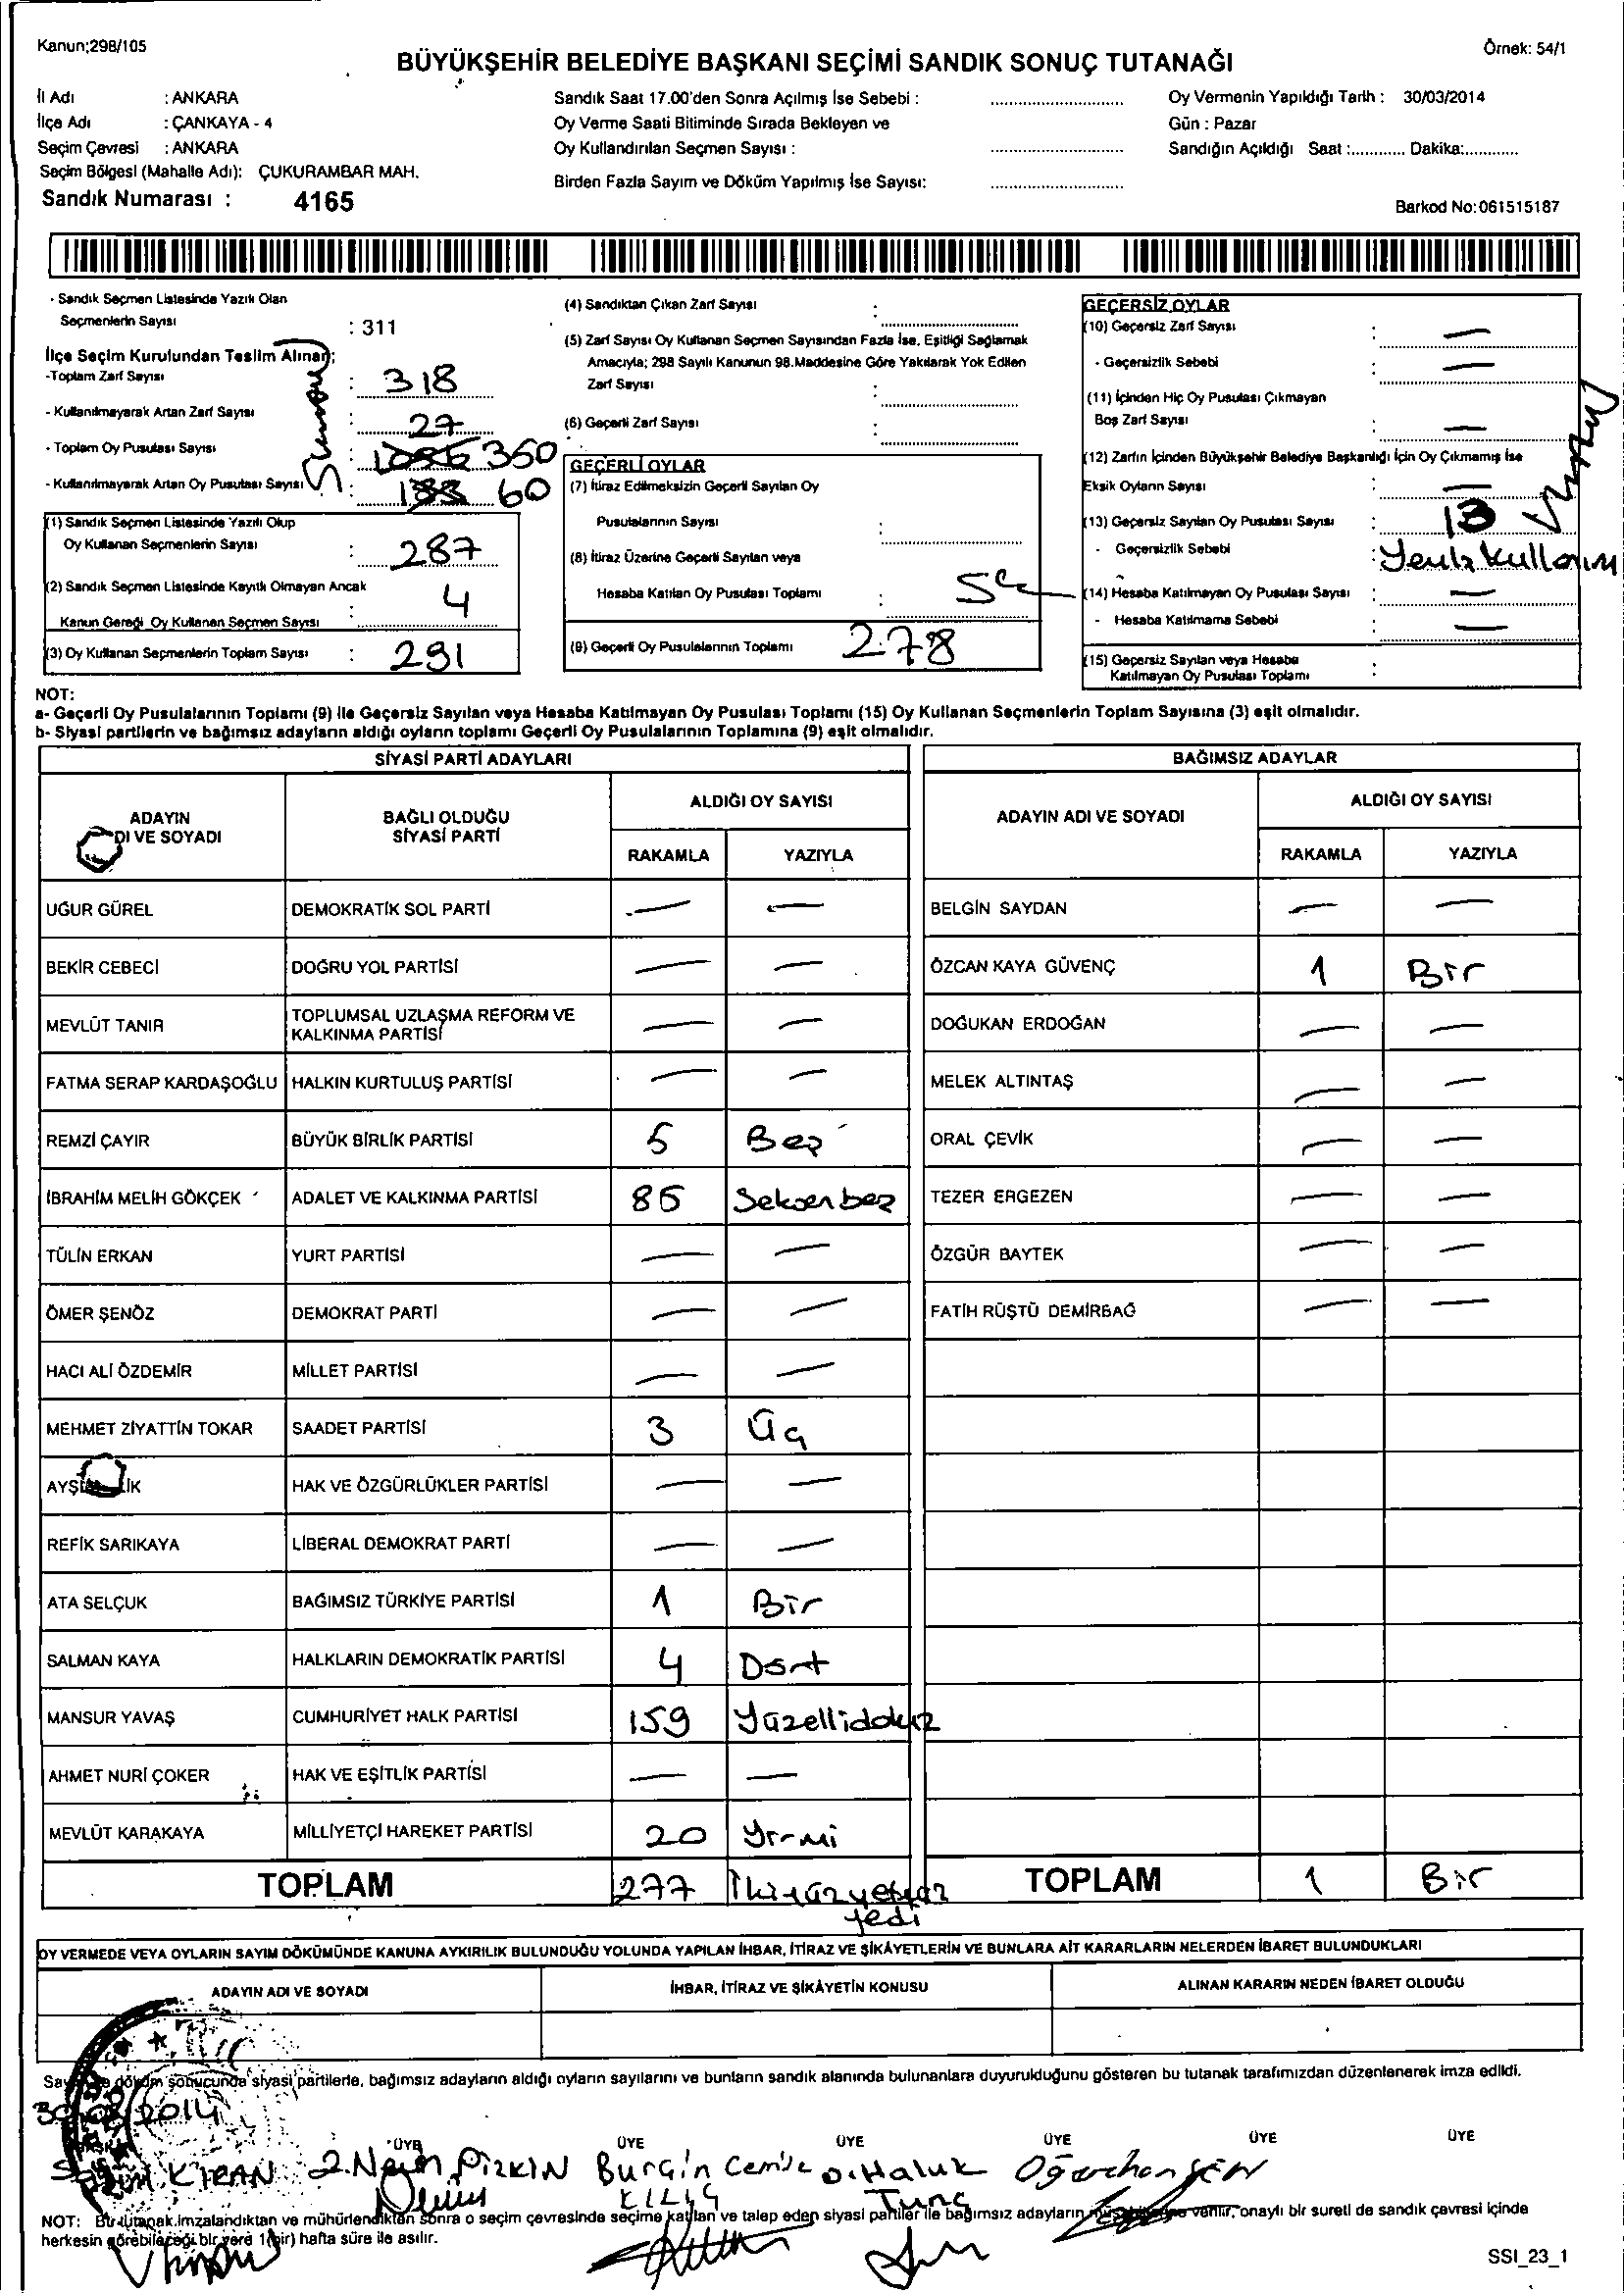 Kanun;298/105
Örnek: 54/1
BÜYÜKŞEHİR BELEDİYE BAŞKANI SEÇİMİ SANDIK SONUÇ TUTANAĞI
İl Adı : ANKARA
İlçe Adı : ÇANKAYA - 4
Seçim Çevresi : ANKARA
Seçim Bölgesi (Mahalle Adı): ÇUKURAMBAR MAH.
Sandık Numarası : 4165
Sandık Saat 17.00'den Sonra Açılmış İse Sebebi :
Oy Verme Saati Bitiminde Sırada Bekleyen ve
Oy Kullandırılan Seçmen Sayısı :
Birden Fazla Sayım ve Döküm Yapılmış İse Sayısı:
Oy Vermenin Yapıldığı Tarih : 30/03/2014
Gün : Pazar
Sandığın Açıldığı Saat :............ Dakika:............
Barkod No:061515187
- Sandık Seçmen Listesinde Yazılı Olan
Seçmenlerin Sayısı : 311
İlçe Seçim Kurulundan Teslim Alınan;
-Toplam Zarf Sayısı : 318
- Kullanılmayarak Artan Zarf Sayısı : 27
- Toplam Oy Pusulası Sayısı : 350
- Kullanılmayarak Artan Oy Pusulası Sayısı : 60
(1) Sandık Seçmen Listesinde Yazılı Olup
Oy Kullanan Seçmenlerin Sayısı : 287
(2) Sandık Seçmen Listesinde Kayıtlı Olmayan Ancak
Kanun Gereği Oy Kullanan Seçmen Sayısı : 4
(3) Oy Kullanan Seçmenlerin Toplam Sayısı : 291
(4) Sandıktan Çıkan Zarf Sayısı :
(5) Zarf Sayısı Oy Kullanan Seçmen Sayısından Fazla İse, Eşitliği Sağlamak
Amacıyla; 298 Sayılı Kanunun 98.Maddesine Göre Yakılarak Yok Edilen
Zarf Sayısı :
(6) Geçerli Zarf Sayısı :
GEÇERLİ OYLAR
(7) İtiraz Edilmeksizin Geçerli Sayılan Oy
Pusulalarının Sayısı :
(8) İtiraz Üzerine Geçerli Sayılan veya
Hesaba Katılan Oy Pusulası Toplamı :
(9) Geçerli Oy Pusulalarının Toplamı 278
GEÇERSİZ OYLAR
(10) Geçersiz Zarf Sayısı : —
- Geçersizlik Sebebi : —
(11) İçinden Hiç Oy Pusulası Çıkmayan
Boş Zarf Sayısı : —
(12) Zarfın İçinden Büyükşehir Belediye Başkanlığı İçin Oy Çıkmamış İse
Eksik Oyların Sayısı : —
(13) Geçersiz Sayılan Oy Pusulası Sayısı : 13
- Geçersizlik Sebebi :
(14) Hesaba Katılmayan Oy Pusulası Sayısı : —
- Hesaba Katılmama Sebebi : —
(15) Geçersiz Sayılan veya Hesaba
Katılmayan Oy Pusulası Toplamı :
NOT:
a- Geçerli Oy Pusulalarının Toplamı (9) ile Geçersiz Sayılan veya Hesaba Katılmayan Oy Pusulası Toplamı (15) Oy Kullanan Seçmenlerin Toplam Sayısına (3) eşit olmalıdır.
b- Siyasi partilerin ve bağımsız adayların aldığı oyların toplamı Geçerli Oy Pusulalarının Toplamına (9) eşit olmalıdır.
SİYASİ PARTİ ADAYLARI
ADAYIN
DI VE SOYADI
BAĞLI OLDUĞU
SİYASİ PARTİ
ALDIĞI OY SAYISI
RAKAMLA YAZIYLA
UĞUR GÜREL DEMOKRATİK SOL PARTİ — —
BEKİR CEBECİ DOĞRU YOL PARTİSİ — —
MEVLÜT TANIR TOPLUMSAL UZLAŞMA REFORM VE
KALKINMA PARTİSİ — —
FATMA SERAP KARDAŞOĞLU HALKIN KURTULUŞ PARTİSİ — —
REMZİ ÇAYIR BÜYÜK BİRLİK PARTİSİ 5 Beş
İBRAHİM MELİH GÖKÇEK ADALET VE KALKINMA PARTİSİ 85 Seksenbeş
TÜLİN ERKAN YURT PARTİSİ — —
ÖMER ŞENÖZ DEMOKRAT PARTİ — —
HACI ALİ ÖZDEMİR MİLLET PARTİSİ — —
MEHMET ZİYATTİN TOKAR SAADET PARTİSİ 3 Üç
HAK VE ÖZGÜRLÜKLER PARTİSİ — —
REFİK SARIKAYA LİBERAL DEMOKRAT PARTİ — —
ATA SELÇUK BAĞIMSIZ TÜRKİYE PARTİSİ 1 Bir
SALMAN KAYA HALKLARIN DEMOKRATİK PARTİSİ 4 Dört
MANSUR YAVAŞ CUMHURİYET HALK PARTİSİ 159 Yüzellidokuz
AHMET NURİ ÇOKER HAK VE EŞİTLİK PARTİSİ — —
MEVLÜT KARAKAYA MİLLİYETÇİ HAREKET PARTİSİ 20 Yirmi
TOPLAM 277 İkiyüzyetmiş
yedi
BAĞIMSIZ ADAYLAR
ADAYIN ADI VE SOYADI
ALDIĞI OY SAYISI
RAKAMLA YAZIYLA
BELGİN SAYDAN — —
ÖZCAN KAYA GÜVENÇ 1 Bir
DOĞUKAN ERDOĞAN — —
MELEK ALTINTAŞ — —
ORAL ÇEVİK — —
TEZER ERGEZEN — —
ÖZGÜR BAYTEK — —
FATİH RÜŞTÜ DEMİRBAĞ — —
TOPLAM 1 Bir
OY VERMEDE VEYA OYLARIN SAYIM DÖKÜMÜNDE KANUNA AYKIRILIK BULUNDUĞU YOLUNDA YAPILAN İHBAR, İTİRAZ VE ŞİKÂYETLERİN VE BUNLARA AİT KARARLARIN NELERDEN İBARET BULUNDUKLARI
ADAYIN ADI VE SOYADI
İHBAR, İTİRAZ VE ŞİKÂYETİN KONUSU
ALINAN KARARIN NEDEN İBARET OLDUĞU
döküm sonucunda siyasi partilerle, bağımsız adayların aldığı oyların sayılarını ve bunların sandık alanında bulunanlara duyurulduğunu gösteren bu tutanak tarafımızdan düzenlenerek imza edildi.
30/03/2014
ÜYE ÜYE ÜYE ÜYE ÜYE ÜYE
KIRAN PİŞKİN Burçin Cemile O.Haluk Oğuzhan ŞEN
KILIÇ Tunç
NOT: Bu tutanak imzalandıktan ve mühürlendikten sonra o seçim çevresinde seçime katılan ve talep eden siyasi partiler ile bağımsız adayların verilir, onaylı bir sureti de sandık çevresi içinde
herkesin görebileceği bir yere 1(bir) hafta süre ile asılır.
SSI_23_1